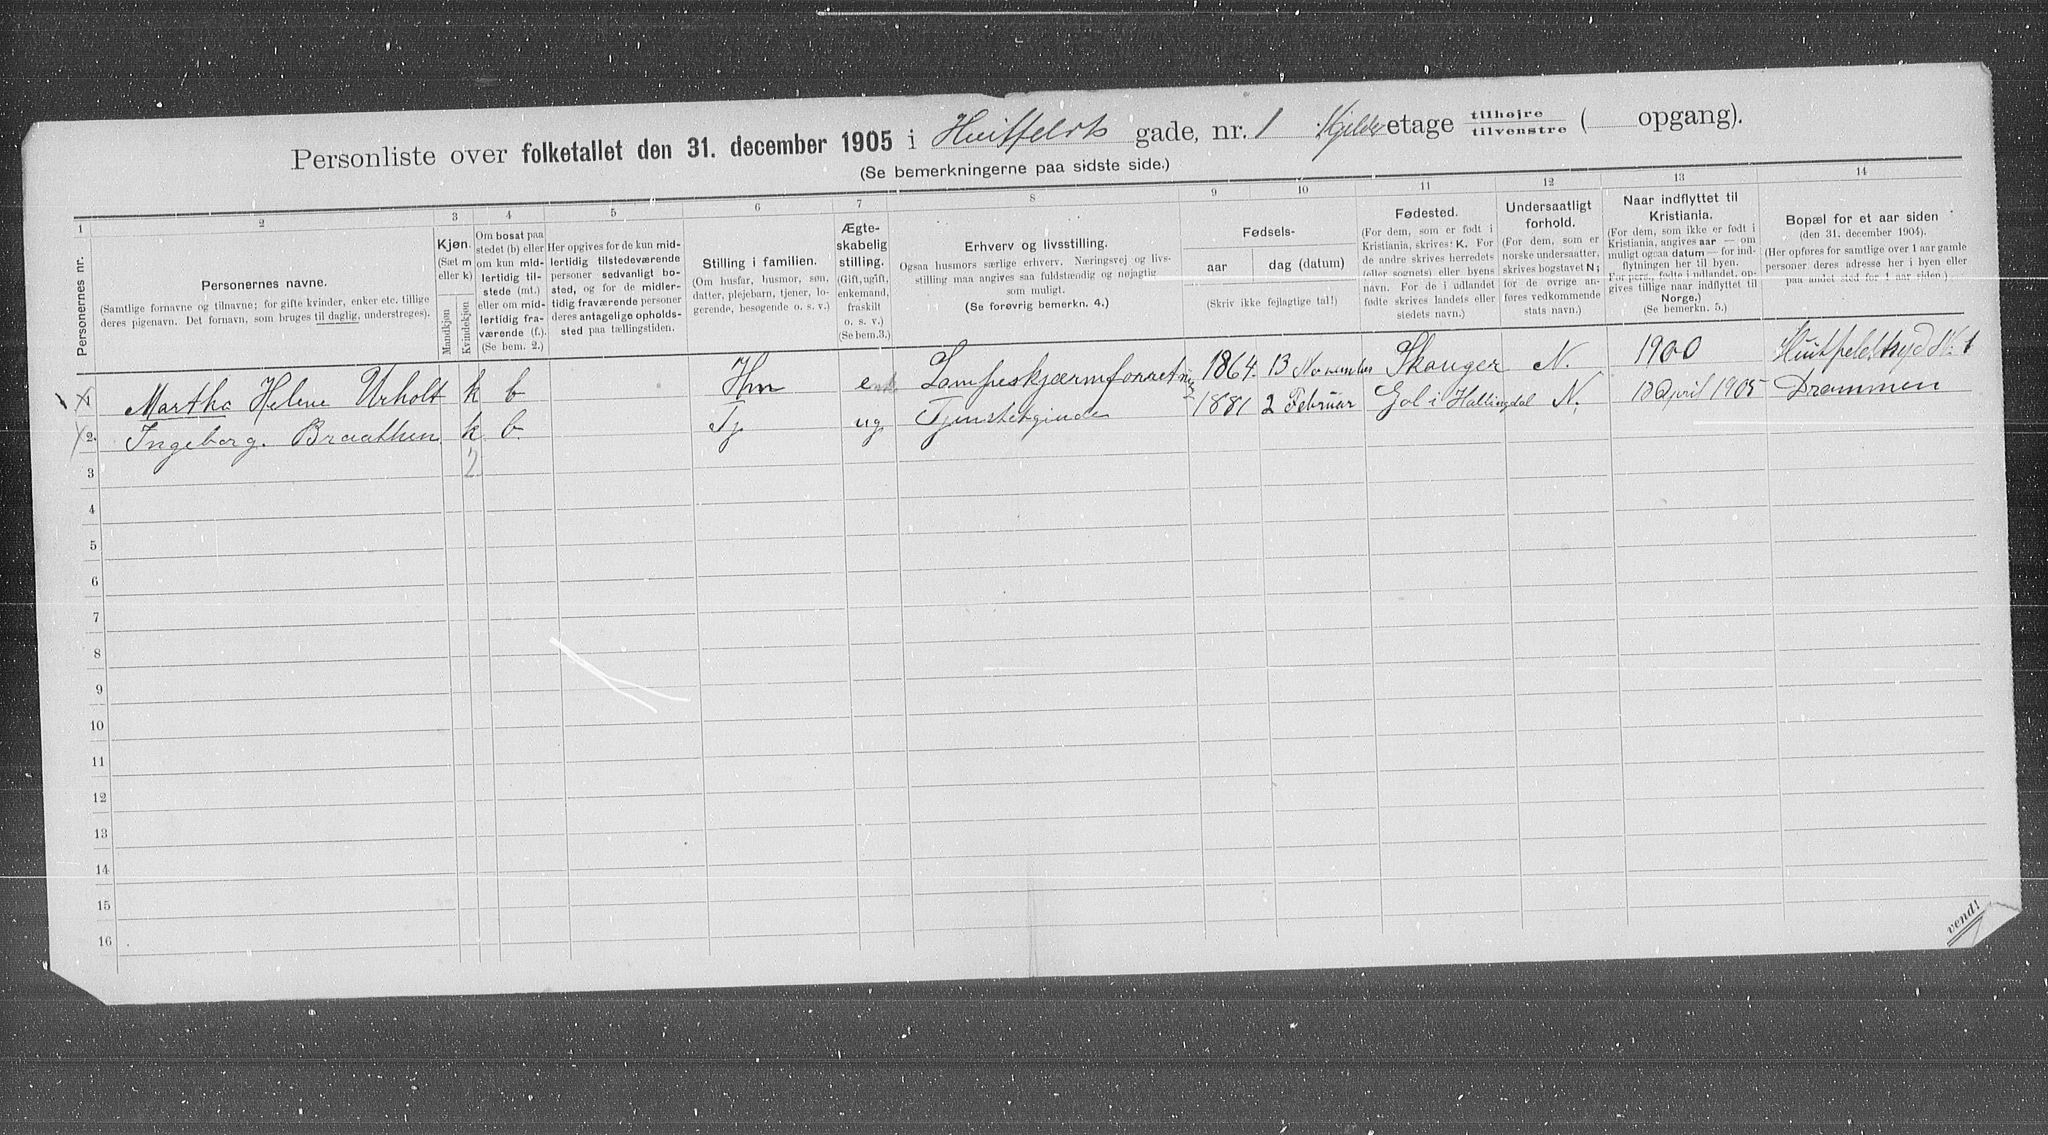 Personliste over folketallet den 31. december 1905 i Huitfeldts gade, nr. 1 Kjelder etage tilhøjre / tilvenstre ( opgang).
(Se bemerkningerne paa sidste side.)
1 2 3 4 5 6 7 8 9 10 11 12 13 14
Personernes nr.
Personernes navne.
(Samtlige fornavne og tilnavne; for gifte kvinder, enker etc. tillige
deres pigenavn. Det fornavn, som bruges til daglig, understreges).
Kjøn.
(Sæt m
eller k)
Mandkjøn
Kvindekjøn
Om bosat paa
stedet (b) eller
om kun mid-
lertidig til-
stede (mt.)
eller om mid-
lertidig fra-
værende (f.).
(Se bem. 2.)
Her opgives for de kun mid-
lertidig tilstedeværende
personer sedvanligt bo-
sted, og for de midler-
tidig fraværende personer
deres antagelige opholds-
sted paa tællingstiden.
Stilling i familien.
(Om husfar, husmor, søn,
datter, plejebarn, tjener, lo-
gerende, besøgende o. s. v.)
Ægte-
skabelig
stilling.
(Gift, ugift,
enkemand,
fraskilt
o. s. v.)
(Se bem. 3.)
Erhverv og livsstilling.
Ogsaa husmors særlige erhverv. Næringsvej og livs-
stilling maa angives saa fuldstændig og nøjagtig
som muligt.
(Se forøvrig bemerkn. 4.)
Fødsels-
aar
dag (datum)
(Skriv ikke fejlagtige tal!)
Fødested.
(For dem, som er født i
Kristiania, skrives: K. For
de andre skrives herredets
(eller sognets) eller byens
navn. For de i udlandet
fødte skrives landets eller
stedets navn.)
Undersaatligt
forhold.
(For dem, som er
norske undersaatter,
skrives bogstavet N;
for de øvrige an-
føres vedkommende
stats navn.)
Naar indflyttet til
Kristiania.
(For dem, som ikke er født i
Kristiania, angives aar — om
muligt ogsaa datum — for ind-
flytningen her til byen.
For perss. fødte i udlandet, op-
gives tillige naar indflyttet til
Norge.)
(Se bemerkn. 5.)
Bopæl for et aar siden
(den 31. december 1904).
(Her opføres for samtlige over 1 aar gamle
personer deres adresse her i byen eller
paa andet sted for 1 aar siden.)
1 Martha Helene Urholt k b Hm enk Lampeskjærmforretning 1864. 13 November Skauger N. 1900 Huitfeldtsgd N. 1
2. Ingeborg. Braathen k b. Tj ug Tjenstetjende 1881 2 Februar Gol i Hallingdal N. 13 April 1905 Drammen
3 2
4
5
6
7
8
9
10
11
12
13
14
15
16
vend!